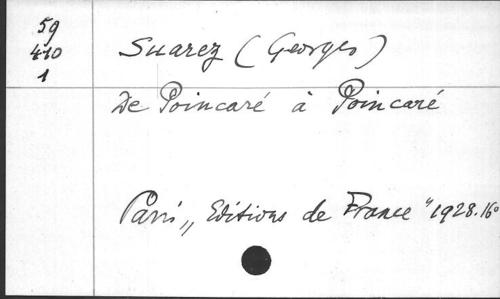 59
410
1
Suarez (Georges)
De Poincaré à Poincaré
Paris „ Editions de France " 1928. 16°